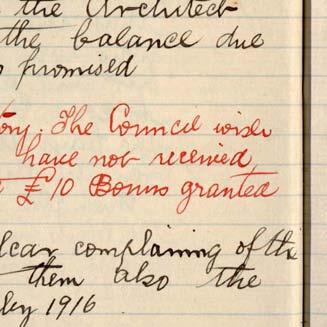 the Architect
the balance due
promised
tory. The Council wish
have not received
£10 Bonus granted
complaining of the
them also the
1916